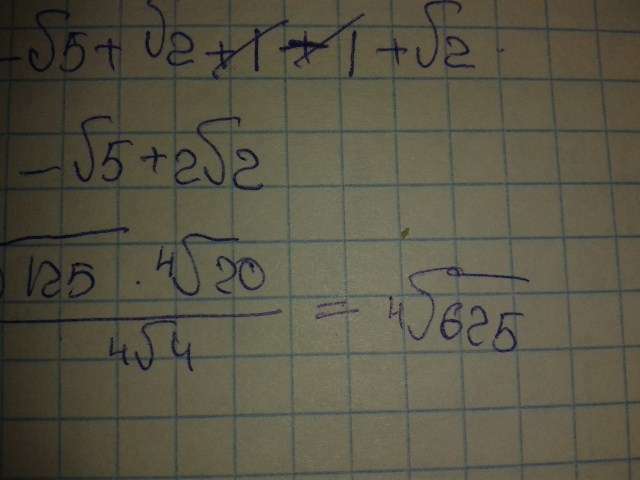 -√5 + √2 + 1 + 1 + √2
-√5 + 2√2
√125 · ⁴√20 / ⁴√4 = ⁴√625